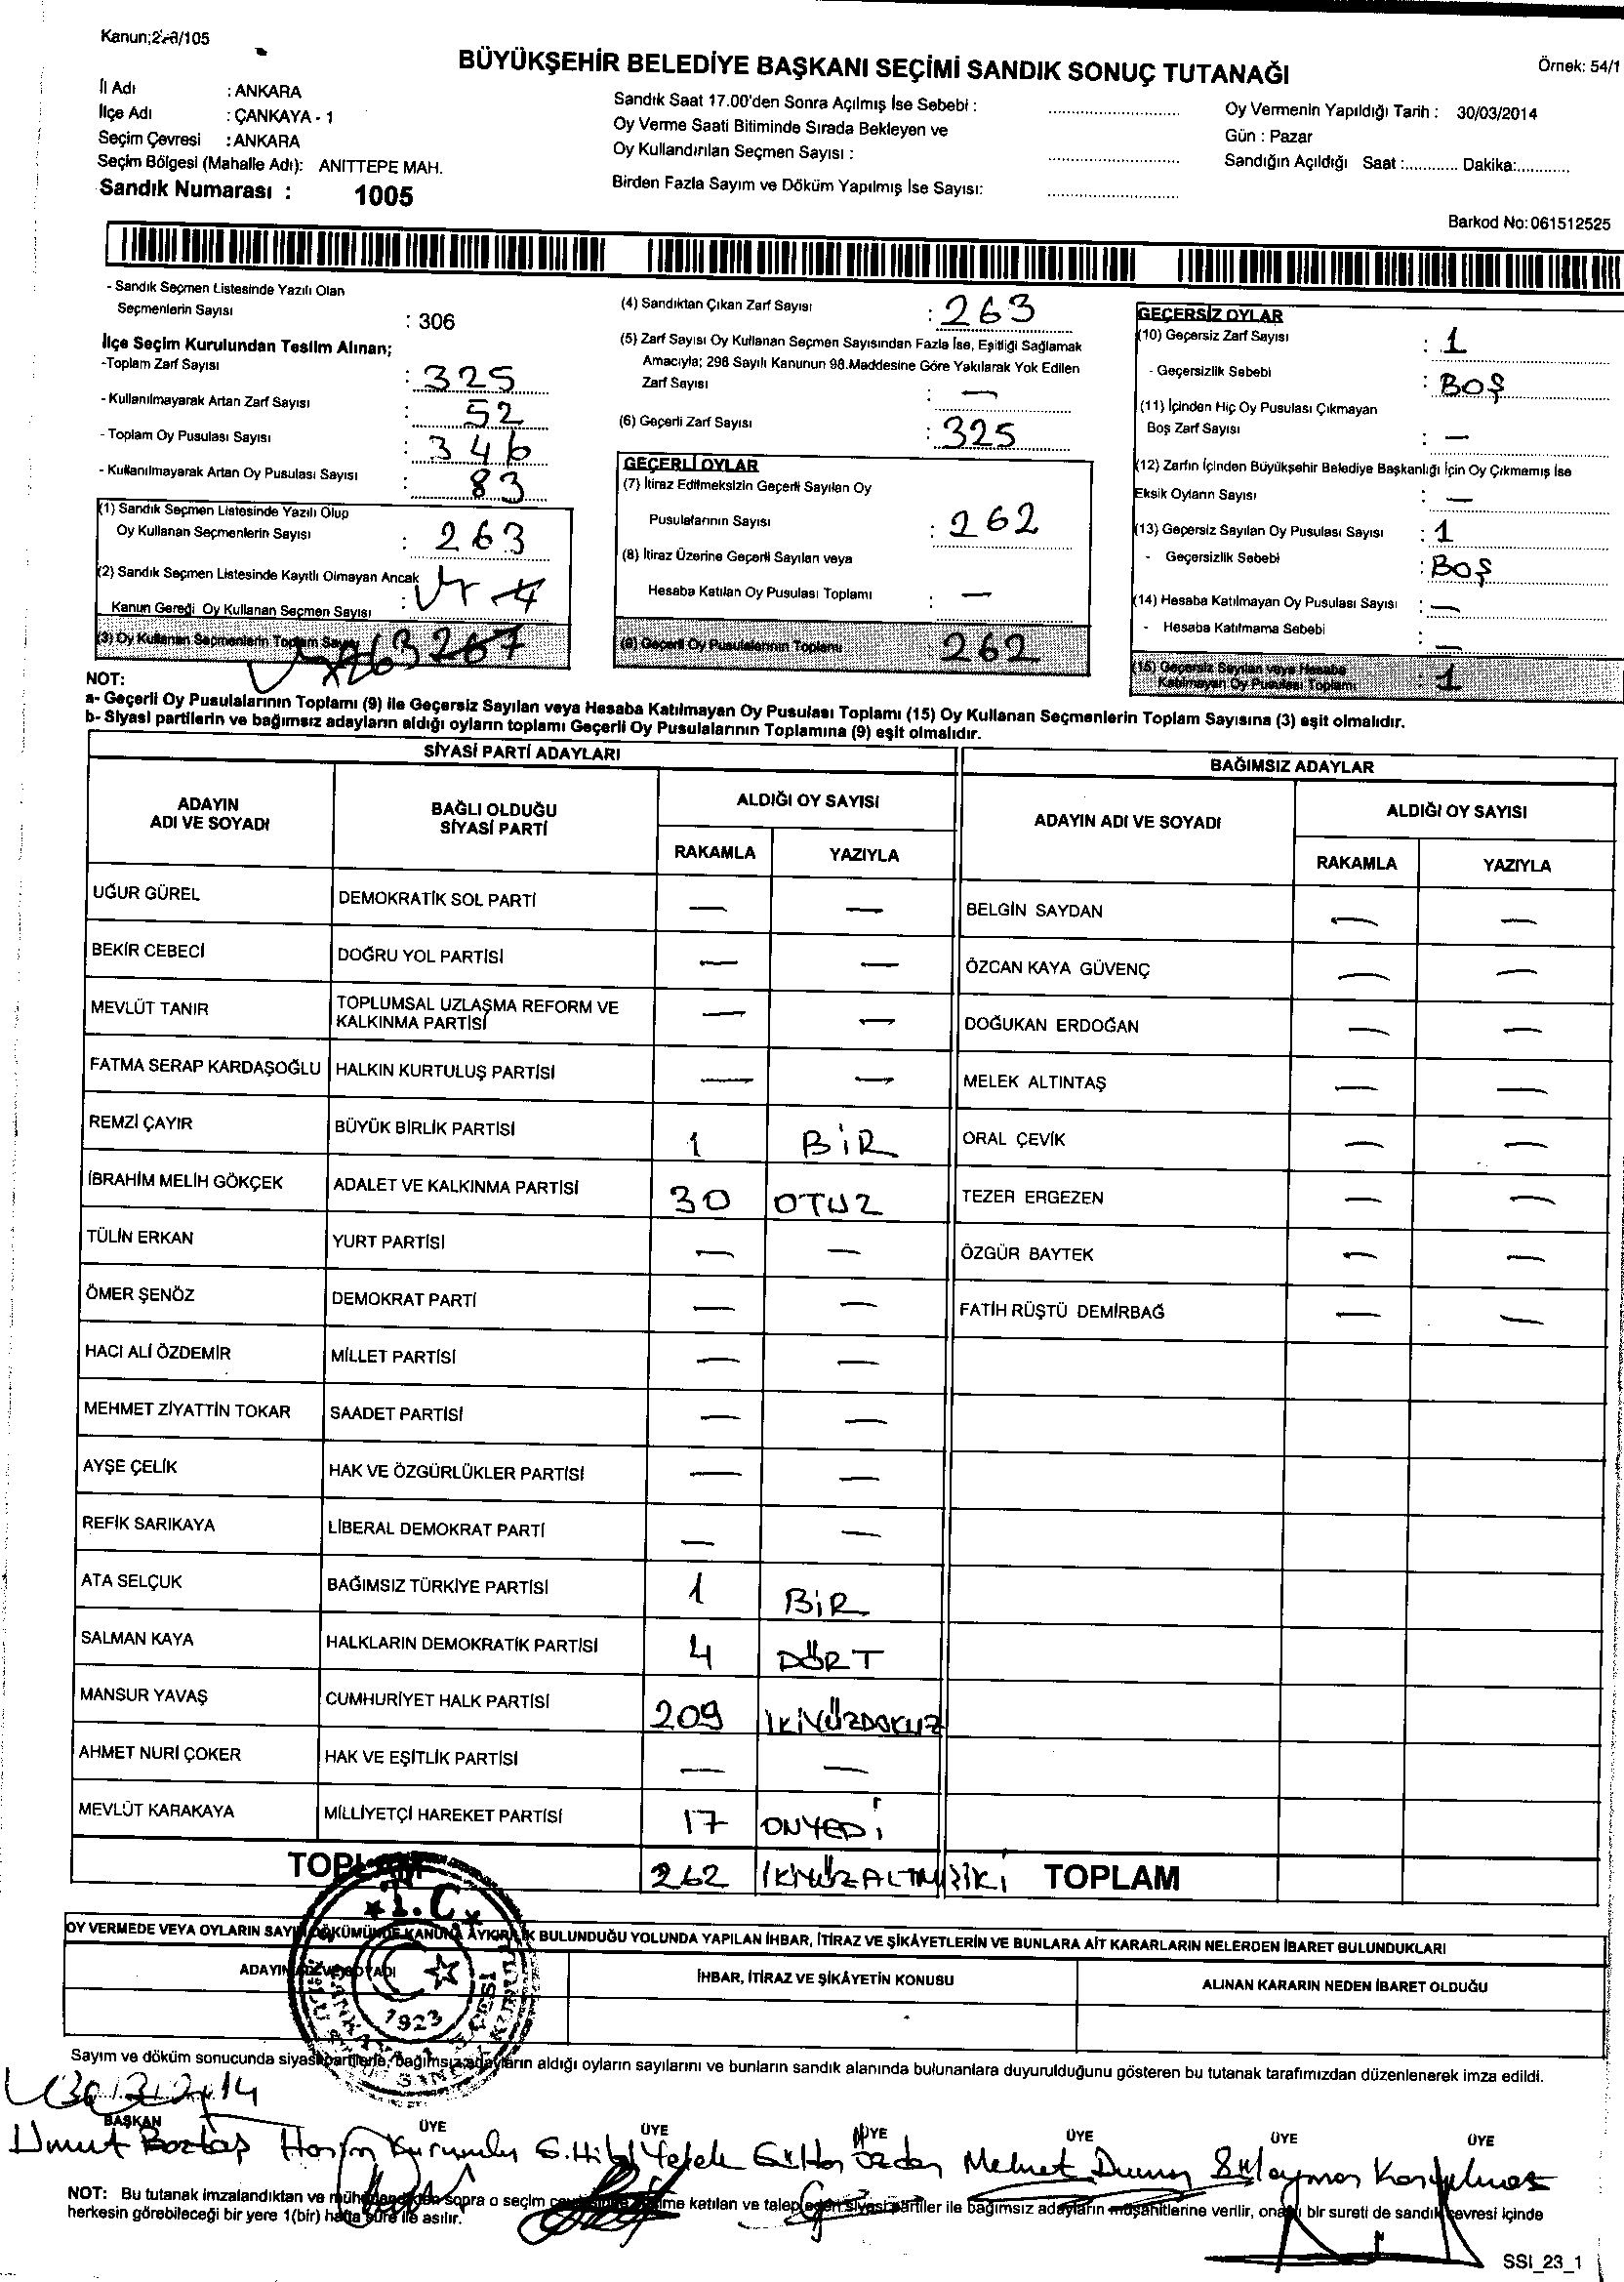 Kanun;298/105
BÜYÜKŞEHİR BELEDİYE BAŞKANI SEÇİMİ SANDIK SONUÇ TUTANAĞI
Örnek: 54/1
İl Adı : ANKARA
İlçe Adı : ÇANKAYA - 1
Seçim Çevresi : ANKARA
Seçim Bölgesi (Mahalle Adı): ANITTEPE MAH.
Sandık Numarası : 1005
Sandık Saat 17.00'den Sonra Açılmış İse Sebebi :
Oy Verme Saati Bitiminde Sırada Bekleyen ve
Oy Kullandırılan Seçmen Sayısı :
Birden Fazla Sayım ve Döküm Yapılmış İse Sayısı:
Oy Vermenin Yapıldığı Tarih : 30/03/2014
Gün : Pazar
Sandığın Açıldığı Saat :............ Dakika:............
Barkod No:061512525
- Sandık Seçmen Listesinde Yazılı Olan
Seçmenlerin Sayısı : 306
İlçe Seçim Kurulundan Teslim Alınan;
-Toplam Zarf Sayısı : 325
- Kullanılmayarak Artan Zarf Sayısı : 52
- Toplam Oy Pusulası Sayısı : 346
- Kullanılmayarak Artan Oy Pusulası Sayısı : 83
(1) Sandık Seçmen Listesinde Yazılı Olup
Oy Kullanan Seçmenlerin Sayısı : 263
(2) Sandık Seçmen Listesinde Kayıtlı Olmayan Ancak
Kanun Gereği Oy Kullanan Seçmen Sayısı : 4
(3) Oy Kullanan Seçmenlerin Toplam Sayısı 263 267
(4) Sandıktan Çıkan Zarf Sayısı : 263
(5) Zarf Sayısı Oy Kullanan Seçmen Sayısından Fazla İse, Eşitliği Sağlamak
Amacıyla; 298 Sayılı Kanunun 98.Maddesine Göre Yakılarak Yok Edilen
Zarf Sayısı : —
(6) Geçerli Zarf Sayısı : 325
GEÇERLİ OYLAR
(7) İtiraz Edilmeksizin Geçerli Sayılan Oy
Pusulalarının Sayısı : 262
(8) İtiraz Üzerine Geçerli Sayılan veya
Hesaba Katılan Oy Pusulası Toplamı : —
(9) Geçerli Oy Pusulalarının Toplamı 262
GEÇERSİZ OYLAR
(10) Geçersiz Zarf Sayısı : 1
- Geçersizlik Sebebi : BOŞ
(11) İçinden Hiç Oy Pusulası Çıkmayan
Boş Zarf Sayısı : —
(12) Zarfın İçinden Büyükşehir Belediye Başkanlığı İçin Oy Çıkmamış İse
Eksik Oyların Sayısı : —
(13) Geçersiz Sayılan Oy Pusulası Sayısı : 1
- Geçersizlik Sebebi : BOŞ
(14) Hesaba Katılmayan Oy Pusulası Sayısı : —
- Hesaba Katılmama Sebebi : —
(15) Geçersiz Sayılan veya Hesaba
Katılmayan Oy Pusulası Toplamı : 1
NOT:
a- Geçerli Oy Pusulalarının Toplamı (9) ile Geçersiz Sayılan veya Hesaba Katılmayan Oy Pusulası Toplamı (15) Oy Kullanan Seçmenlerin Toplam Sayısına (3) eşit olmalıdır.
b- Siyasi partilerin ve bağımsız adayların aldığı oyların toplamı Geçerli Oy Pusulalarının Toplamına (9) eşit olmalıdır.
SİYASİ PARTİ ADAYLARI
BAĞIMSIZ ADAYLAR
ADAYIN ADI VE SOYADI
BAĞLI OLDUĞU SİYASİ PARTİ
ALDIĞI OY SAYISI
RAKAMLA YAZIYLA
ADAYIN ADI VE SOYADI
ALDIĞI OY SAYISI
RAKAMLA YAZIYLA
UĞUR GÜREL DEMOKRATİK SOL PARTİ — — BELGİN SAYDAN — —
BEKİR CEBECİ DOĞRU YOL PARTİSİ — — ÖZCAN KAYA GÜVENÇ — —
MEVLÜT TANIR TOPLUMSAL UZLAŞMA REFORM VE KALKINMA PARTİSİ — — DOĞUKAN ERDOĞAN — —
FATMA SERAP KARDAŞOĞLU HALKIN KURTULUŞ PARTİSİ — — MELEK ALTINTAŞ — —
REMZİ ÇAYIR BÜYÜK BİRLİK PARTİSİ 1 BİR ORAL ÇEVİK — —
İBRAHİM MELİH GÖKÇEK ADALET VE KALKINMA PARTİSİ 30 OTUZ TEZER ERGEZEN — —
TÜLİN ERKAN YURT PARTİSİ — — ÖZGÜR BAYTEK — —
ÖMER ŞENÖZ DEMOKRAT PARTİ — — FATİH RÜŞTÜ DEMİRBAĞ — —
HACI ALİ ÖZDEMİR MİLLET PARTİSİ — —
MEHMET ZİYATTİN TOKAR SAADET PARTİSİ — —
AYŞE ÇELİK HAK VE ÖZGÜRLÜKLER PARTİSİ — —
REFİK SARIKAYA LİBERAL DEMOKRAT PARTİ — —
ATA SELÇUK BAĞIMSIZ TÜRKİYE PARTİSİ 1 BİR
SALMAN KAYA HALKLARIN DEMOKRATİK PARTİSİ 4 DÖRT
MANSUR YAVAŞ CUMHURİYET HALK PARTİSİ 209 İKİYÜZDOKUZ
AHMET NURİ ÇOKER HAK VE EŞİTLİK PARTİSİ — —
MEVLÜT KARAKAYA MİLLİYETÇİ HAREKET PARTİSİ 17 ONYEDİ
TOPLAM 262 İKİYÜZALTMIŞİKİ TOPLAM
T.C.
1923
OY VERMEDE VEYA OYLARIN SAYIM DÖKÜMÜNDE KANUNA AYKIRILIK BULUNDUĞU YOLUNDA YAPILAN İHBAR, İTİRAZ VE ŞİKÂYETLERİN VE BUNLARA AİT KARARLARIN NELERDEN İBARET BULUNDUKLARI
ADAYIN ADI VE SOYADI İHBAR, İTİRAZ VE ŞİKÂYETİN KONUSU ALINAN KARARIN NEDEN İBARET OLDUĞU
Sayım ve döküm sonucunda siyasi partilerle, bağımsız adayların aldığı oyların sayılarını ve bunların sandık alanında bulunanlara duyurulduğunu gösteren bu tutanak tarafımızdan düzenlenerek imza edildi.
30/3/2014
BAŞKAN ÜYE ÜYE ÜYE ÜYE ÜYE ÜYE
Umut Boztaş Mehmet Süleyman
NOT: Bu tutanak imzalandıktan ve mühürlendikten sonra o seçim çevresinde seçime katılan ve talep eden siyasi partiler ile bağımsız adayların müşahitlerine verilir, onaylı bir sureti de sandık çevresi içinde
herkesin görebileceği bir yere 1(bir) hafta süre ile asılır.
SSI_23_1